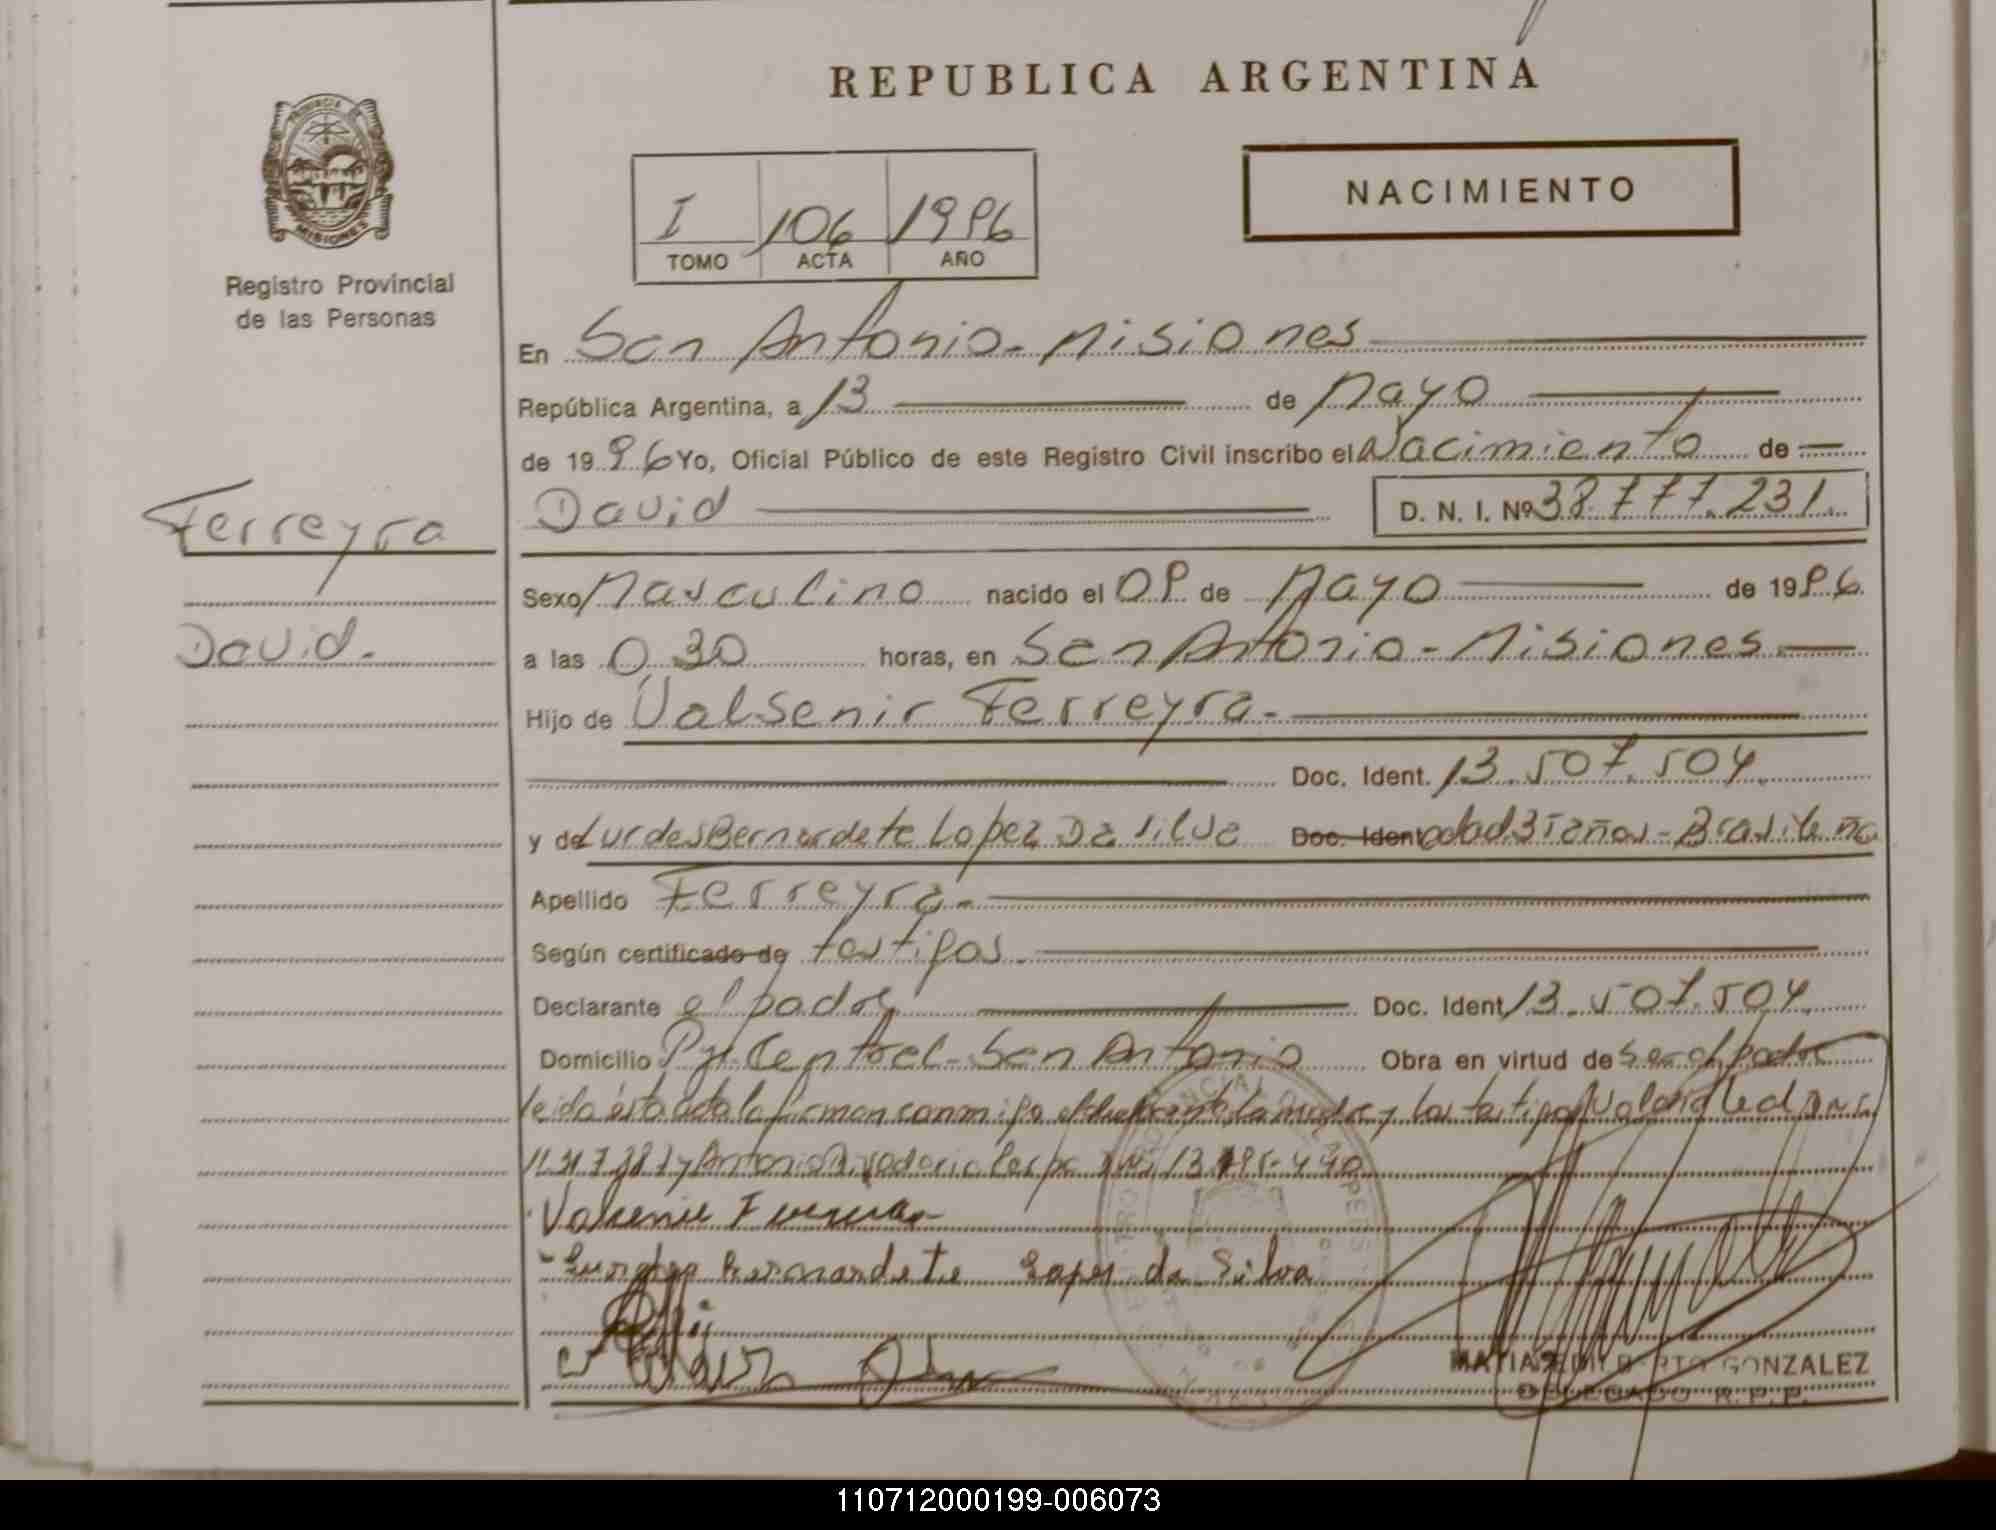 REPUBLICA ARGENTINA
PROVINCIA DE MISIONES
Registro Provincial
de las Personas
NACIMIENTO
I 106 1996
TOMO ACTA AÑO
En San Antonio - Misiones
República Argentina, a 13 de Mayo
de 1996 Yo, Oficial Público de este Registro Civil inscribo el Nacimiento de
Ferreyra
David
David D. N. I. Nº 38.777.231.
Sexo Masculino nacido el 09 de Mayo de 1996.
a las 0,30 horas, en San Antonio - Misiones
Hijo de Valsenir Ferreyra -
Doc. Ident. 13.507.504.
y de Lurdes Bernardete Lopez Da Silva Doc. Ident edad 31 años - Brasileña
Apellido Ferreyra -
Según certificado de testigos.
Declarante el padre Doc. Ident 13.507.504.
Domicilio Pje. Central - San Antonio Obra en virtud de ser el padre
leida esta acta la firman conmigo el la madre y los testigos
y Antonio
Valsenir Ferreyra
Lurdes Bernardete Lopes da Silva
MATIAS GONZALEZ
DELEGADO R.P.P.
110712000199-006073